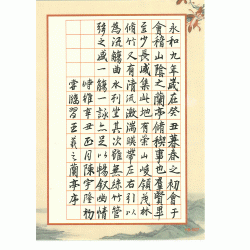 永和九年歲在癸丑暮春之初會于
會稽山陰之蘭亭脩稧事也羣賢畢
至少長咸集此地有崇山峻領茂林
脩竹又有清流激湍暎帶左右引以
為流觴曲水列坐其次雖無絲竹管
弦之盛一觴一詠亦足以暢叙幽情
時維辛丑正月陳宇隆初
臨習王羲之蘭亭序